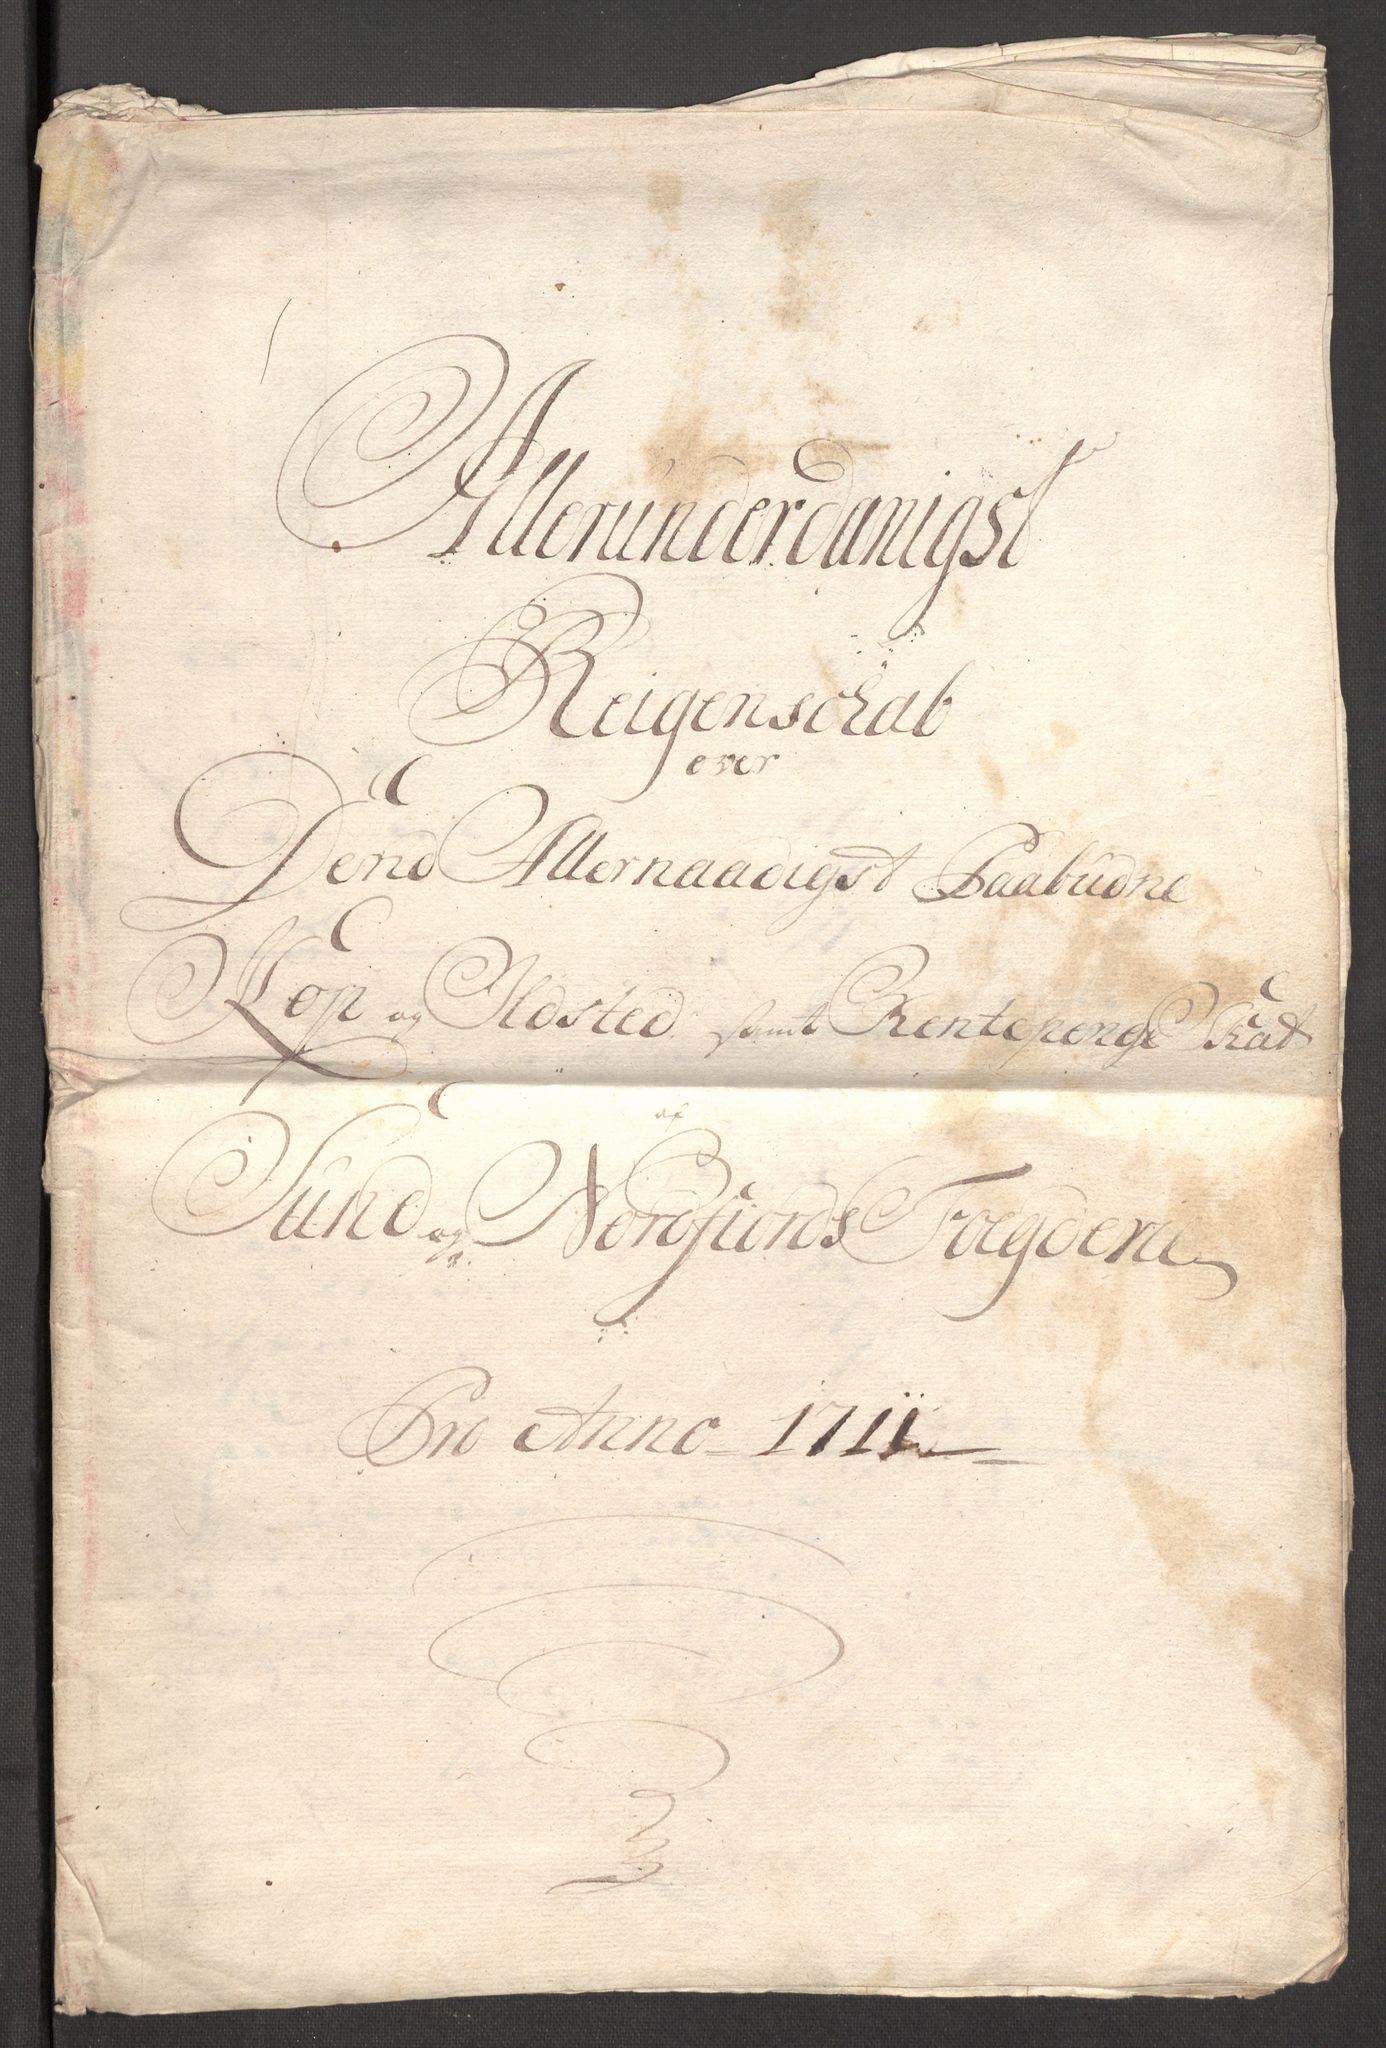 Alleründerdanigst
Reigenschab
over
Dend Allernaadigst Paabüdne
Kop og Ildsted samt Rentepenge Skat
af
Sünd og Nordfiords Foegderie
Pro Anno 1711